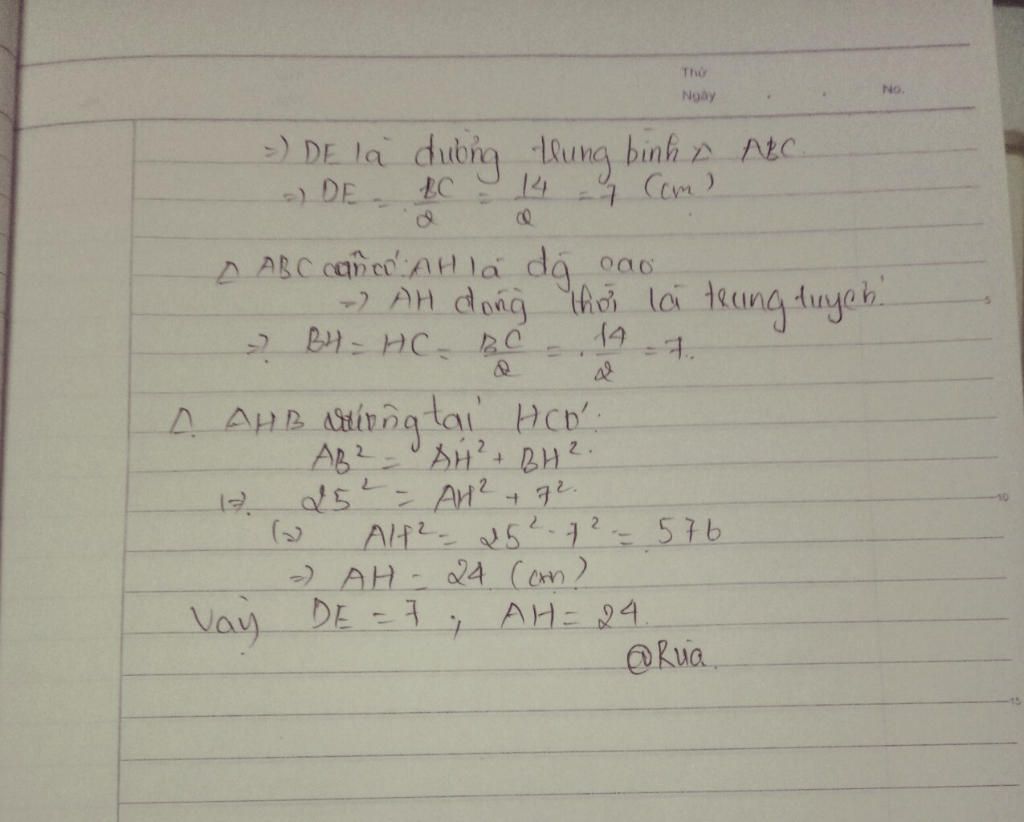 Thứ
Ngày . . No.
=) DE là đường trung bình △ ABC.
=) DE = BC/2 = 14/2 = 7 (cm)
△ ABC cân có: AH là đg cao
=) AH đồng thời là trung tuyến.
5
=) BH = HC = BC/2 = 14/2 = 7.
△. AHB vuông tại H có:
AB² = AH² + BH².
(=). 25² = AH² + 7².
10
(=) AH² = 25² - 7² = 576
=) AH = 24 (cm)
Vậy DE = 7 ; AH = 24.
@Rùa.
15